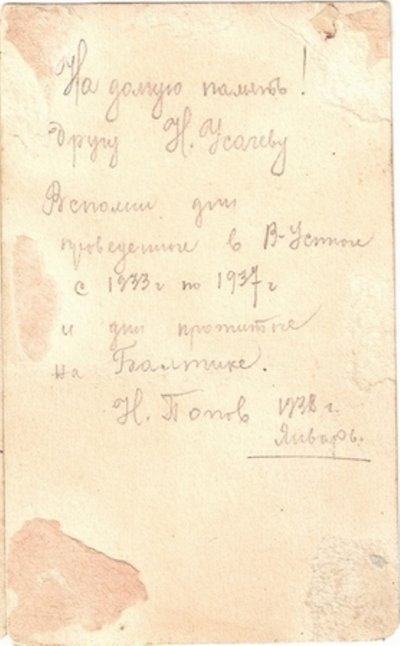 На долгую память!
Другу Н. Усачеву
Вспомни дни
проведенное в В-Устюге
с 1933 г по 1937 г
и дни прожитое
на Балтике.
Н. Попов 1938 г.
Январь.